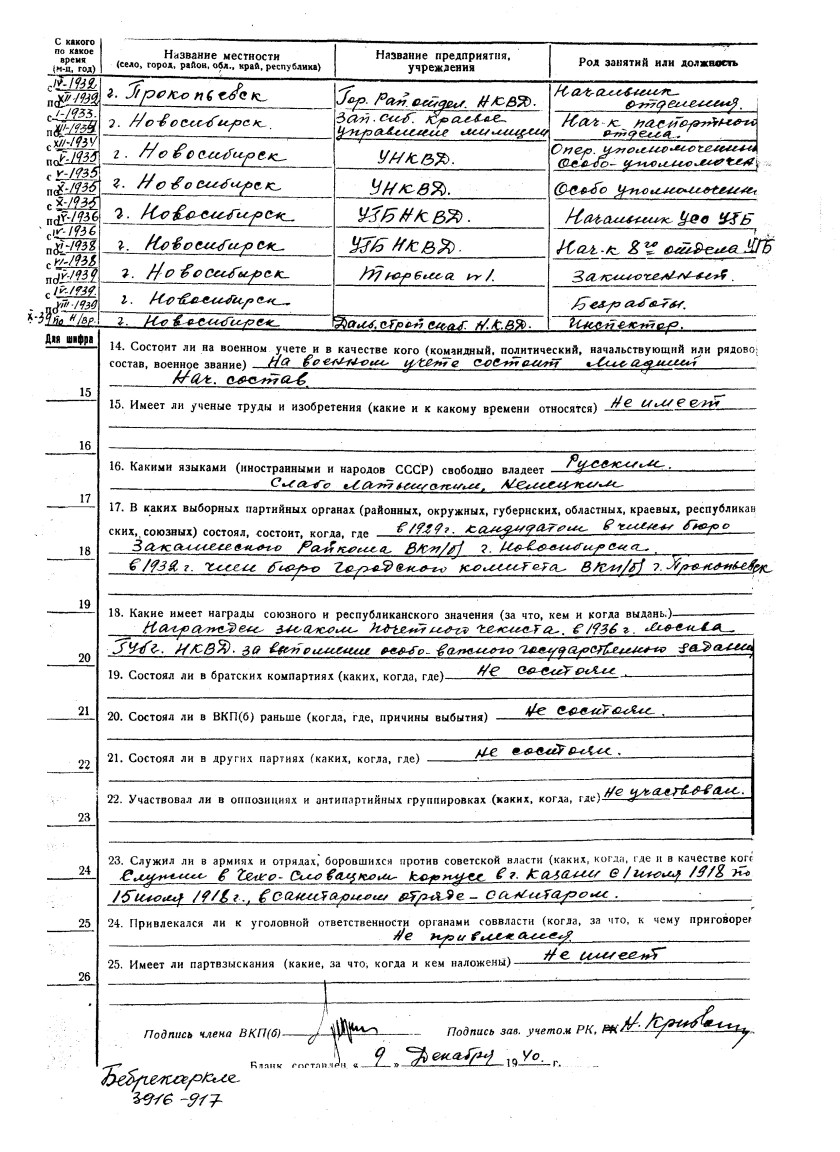 С какого по какое время (м-ц, год) | Название местности (село, город, район, обл., край, республика) | Название предприятия, учреждения | Род занятий или должность
с IV-1932 по XII-1932 | г. Прокопьевск | Гор. Рай. отдел. НКВД. | Начальник отделения.
с I-1933. по XII-1934 | г. Новосибирск. | Зап. сиб. Краевое управление милиции | Нач-к паспортного отдела.
с XII-1934 по V-1935 | г. Новосибирск | УНКВД. | Опер. уполномоченный Особо-уполномочен
с V-1935 по X-1935 | г. Новосибирск | УНКВД. | Особо уполномоченн
с X-1935 по IV-1936 | г. Новосибирск | УГБ НКВД. | Начальник УСО УГБ
с IV-1936 по VI-1938 | г. Новосибирск | УГБ НКВД. | Нач-к 8го отдела УГБ
с VI-1938 по IV-1939 | г. Новосибирск | Тюрьма №1. | Заключенный.
с IV-1939. по VIII-1939 | г. Новосибирск. | Безработы.
X-39 по н/вр. | г. Новосибирск | Дальстройснаб. Н.К.ВД. | Инспектор.
Для шифра
14. Состоит ли на военном учете и в качестве кого (командный, политический, начальствующий или рядово
состав, военное звание) На военном учете состоит Младший
Нач. состав.
15
15. Имеет ли ученые труды и изобретения (какие и к какому времени относятся) Не имеет
16
16. Какими языками (иностранными и народов СССР) свободно владеет Русским.
Слабо латышским, Немецким
17
17. В каких выборных партийных органах (районных, окружных, губернских, областных, краевых, республикан
ских, союзных) состоял, состоит, когда, где в 1929г. кандидатом в члены бюро
18
Закаменского Райкома ВКП/б/ г. Новосибирска.
в 1932 г. член бюро Городского комитета ВКП/б/ г. Прокопьевск
19
18. Какие имеет награды союзного и республиканского значения (за что, кем и когда выданы.)
Награжден знаком почетного чекиста. в 1936 г. Москва
20
НКВД. за выполнение особо-важного государственного задания
19. Состоял ли в братских компартиях (каких, когда, где) Не состоял.
21
20. Состоял ли в ВКП(б) раньше (когда, где, причины выбытия) Не состоял.
22
21. Состоял ли в других партиях (каких, когда, где) Не состоял.
22. Участвовал ли в оппозициях и антипартийных группировках (каких, когда, где) Не участвовал.
23
23. Служил ли в армиях и отрядах, боровшихся против советской власти (каких, когда, где и в качестве кого
24
Служил в Чехо-Словацком корпусе в г. Казани с 1 июля 1918 по
15 июля 1918 г., в санитарном отряде – санитаром.
25
24. Привлекался ли к уголовной ответственности органами соввласти (когда, за что, к чему приговорен
Не привлекался
25. Имеет ли партвзыскания (какие, за что, когда и кем наложены) Не имеет
26
Подпись члена ВКП(б) Подпись зав. учетом РК,
Бланк составлен « 9 » Декабря 1940. г.
Бебрекаркле
3916-917